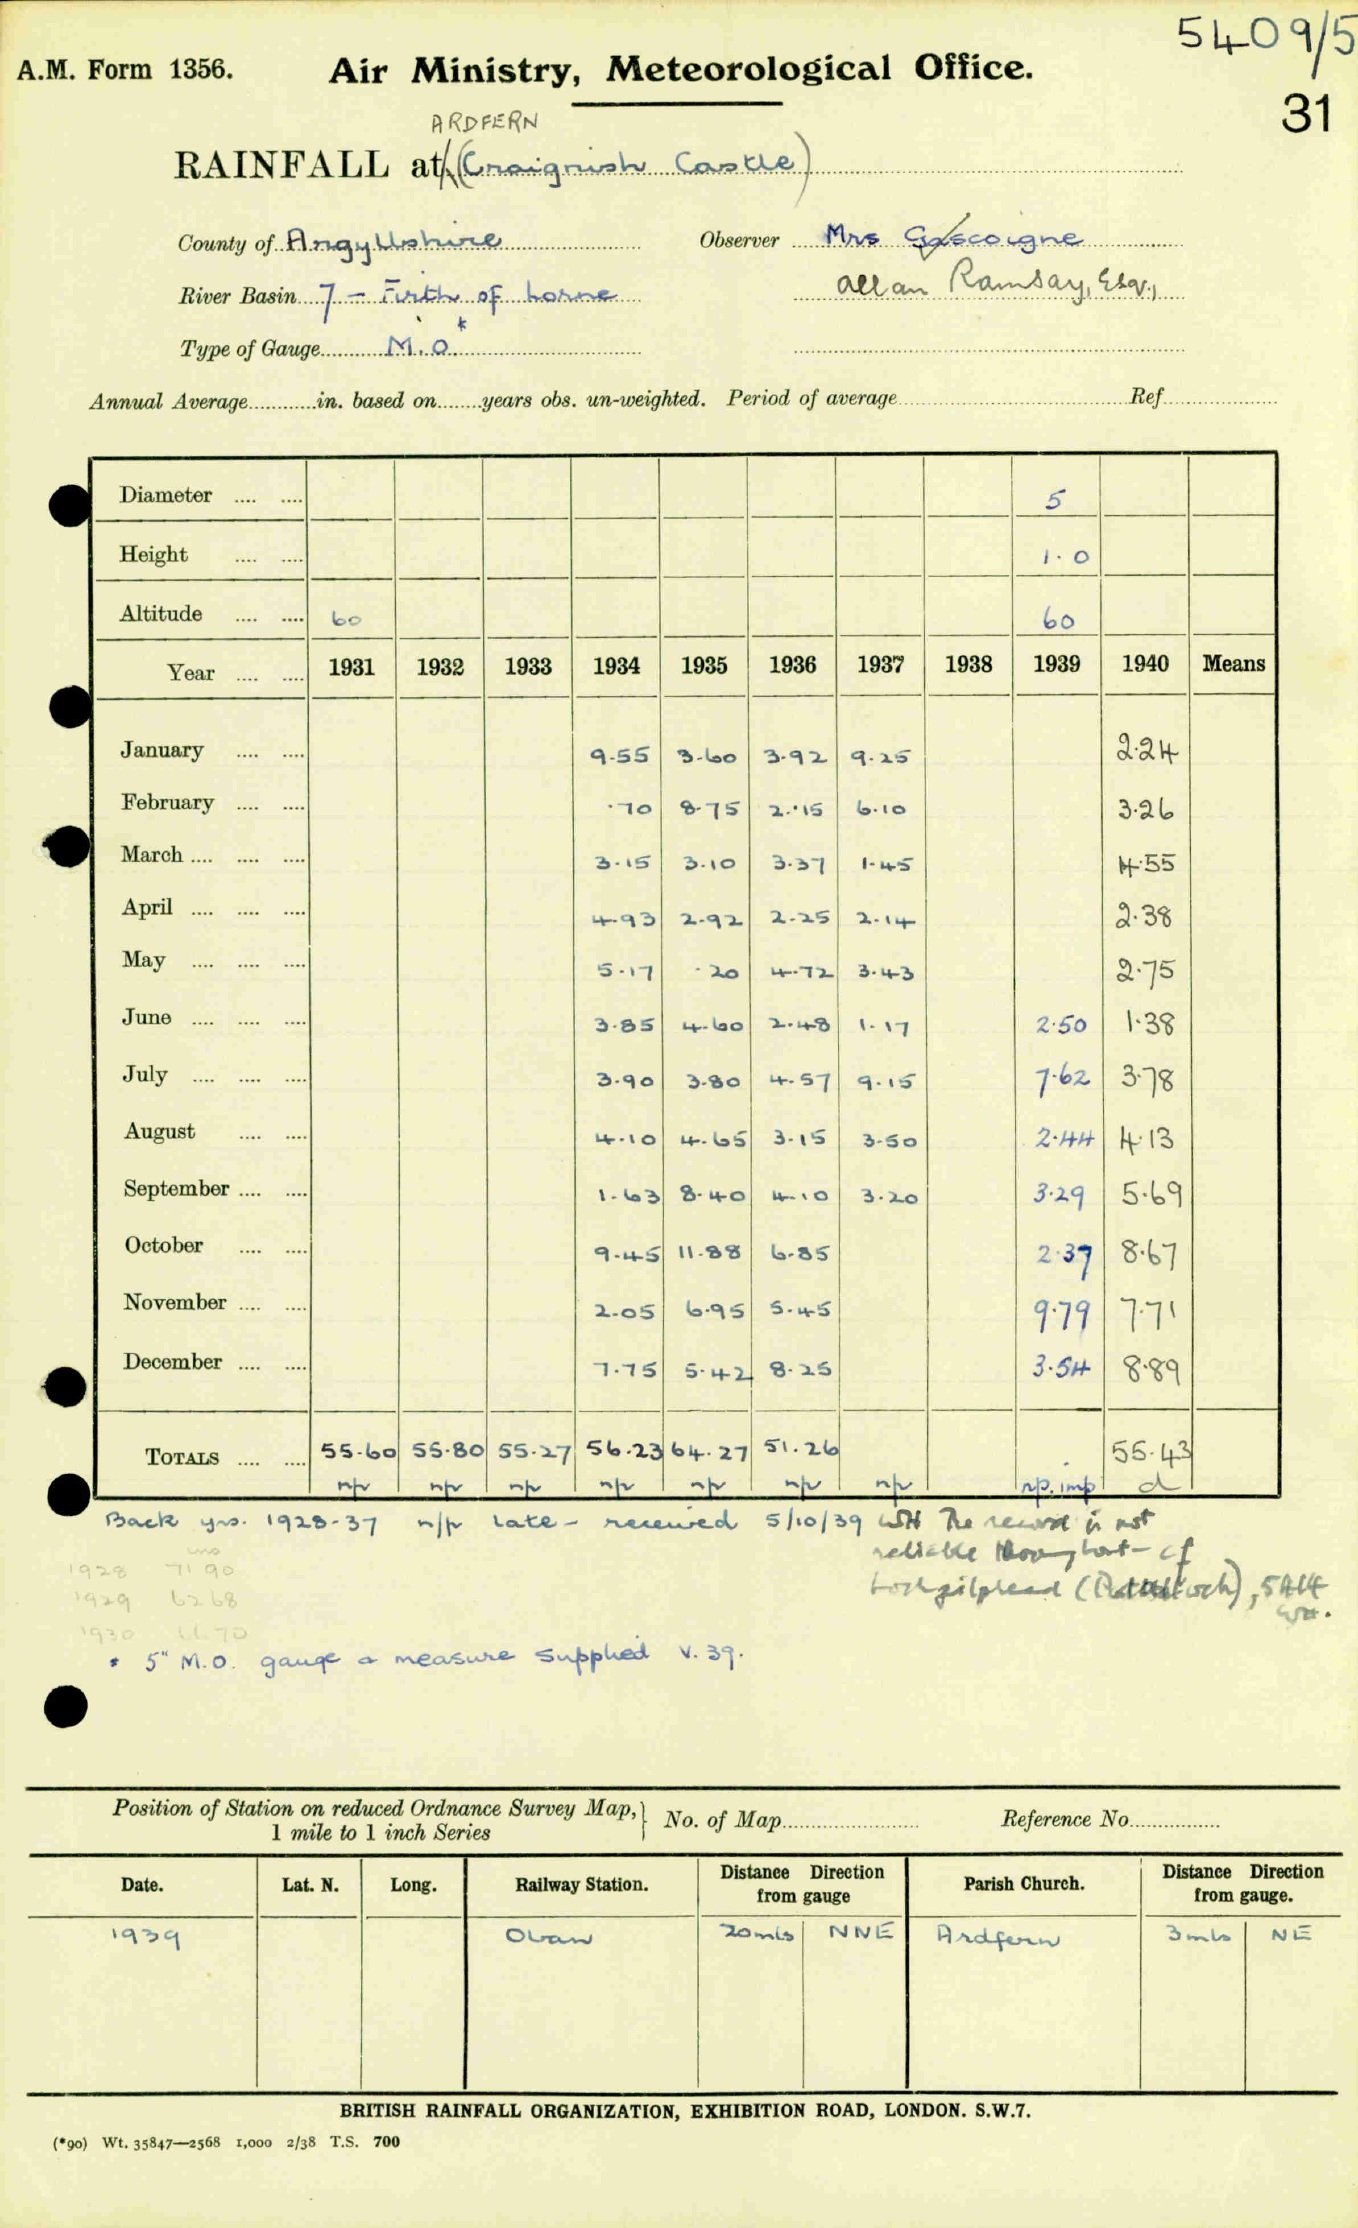 5409/5
A.M. Form 1356. Air Ministry, Meteorological Office.
31
ARDFERN
RAINFALL at (Craignish Castle)
County of Argyllshire Observer Mrs Gascoigne
River Basin 7 - Firth of Lorne Allan Ramsay, Esq.,
Type of Gauge M.O.*
Annual Average in. based on years obs. un-weighted. Period of average Ref
Diameter .... .... 5
Height .... .... 1.0
Altitude .... .... 60 60
Year .... .... 1931 1932 1933 1934 1935 1936 1937 1938 1939 1940 Means
January .... .... 9.55 3.60 3.92 9.25 2.24
February .... .... .70 8.75 2.15 6.10 3.26
March .... .... .... 3.15 3.10 3.37 1.45 4.55
April .... .... .... 4.93 2.92 2.25 2.14 2.38
May .... .... .... 5.17 .20 4.72 3.43 2.75
June .... .... .... 3.85 4.60 2.48 1.17 2.50 1.38
July .... .... .... 3.90 3.80 4.57 9.15 7.62 3.78
August .... .... 4.10 4.65 3.15 3.50 2.44 4.13
September .... .... 1.63 8.40 4.10 3.20 3.29 5.69
October .... .... 9.45 11.88 6.85 2.37 8.67
November .... .... 2.05 6.95 5.45 9.79 7.71
December .... .... 7.75 5.42 8.25 3.54 8.89
TOTALS .... .... 55.60 55.80 55.27 56.23 64.27 51.26 55.43
np np np np np np np np. imp d
Back yrs. 1928-37 n/p late - received 5/10/39 The record is not
reliable throughout - cf
1928 71 90
Lochgilphead (Poltalloch), 
1929 62 68
1930 70
* 5" M.O. gauge & measure supplied V.39.
Position of Station on reduced Ordnance Survey Map, No. of Map Reference No
1 mile to 1 inch Series
Date. Lat. N. Long. Railway Station. Distance Direction from gauge Parish Church. Distance Direction from gauge.
1939 Oban 20mls NNE Ardfern 3mls NE
BRITISH RAINFALL ORGANIZATION, EXHIBITION ROAD, LONDON. S.W.7.
(*90) Wt. 35847—2568 1,000 2/38 T.S. 700